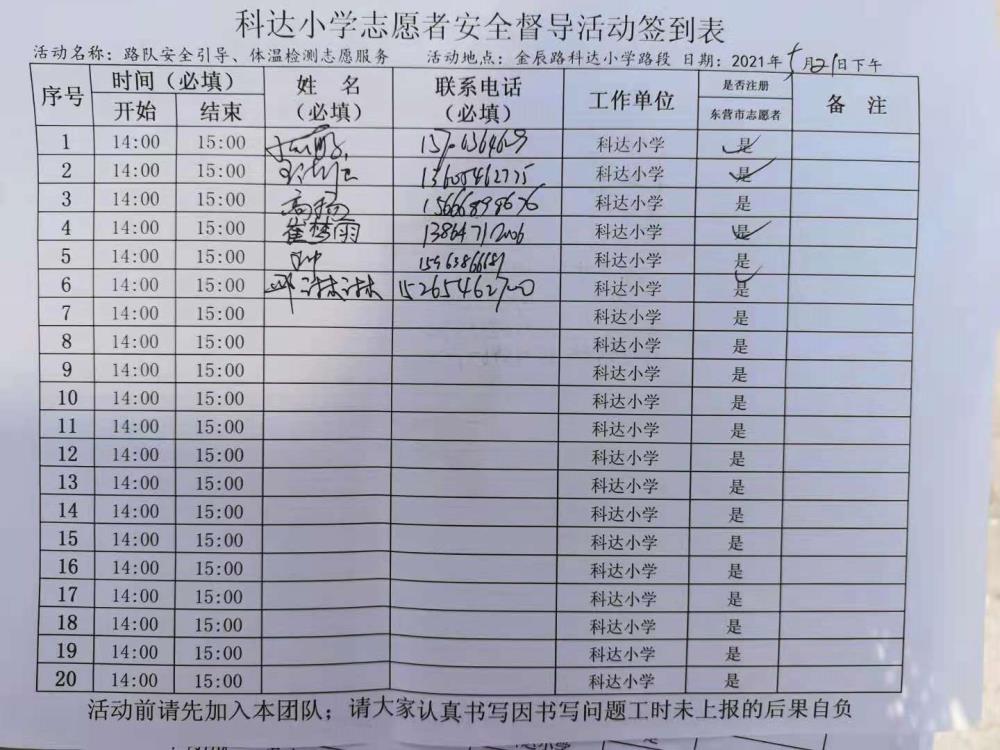 科达小学志愿者安全督导活动签到表
活动名称：路队安全引导、体温检测志愿服务 活动地点：金辰路科达小学路段 日期：2021年5月21日下午
序号 时间（必填） 姓 名（必填） 联系电话（必填） 工作单位 是否注册东营市志愿者 备 注
开始 结束
1 14:00 15:00 科达小学 是
2 14:00 15:00 13605462775 科达小学 是
3 14:00 15:00 高杨 15666898676 科达小学 是
4 14:00 15:00 崔梦雨 13864712006 科达小学 是
5 14:00 15:00 科达小学 是
6 14:00 15:00 邓淋淋 15265462700 科达小学 是
7 14:00 15:00 科达小学 是
8 14:00 15:00 科达小学 是
9 14:00 15:00 科达小学 是
10 14:00 15:00 科达小学 是
11 14:00 15:00 科达小学 是
12 14:00 15:00 科达小学 是
13 14:00 15:00 科达小学 是
14 14:00 15:00 科达小学 是
15 14:00 15:00 科达小学 是
16 14:00 15:00 科达小学 是
17 14:00 15:00 科达小学 是
18 14:00 15:00 科达小学 是
19 14:00 15:00 科达小学 是
20 14:00 15:00 科达小学 是
活动前请先加入本团队；请大家认真书写因书写问题工时未上报的后果自负